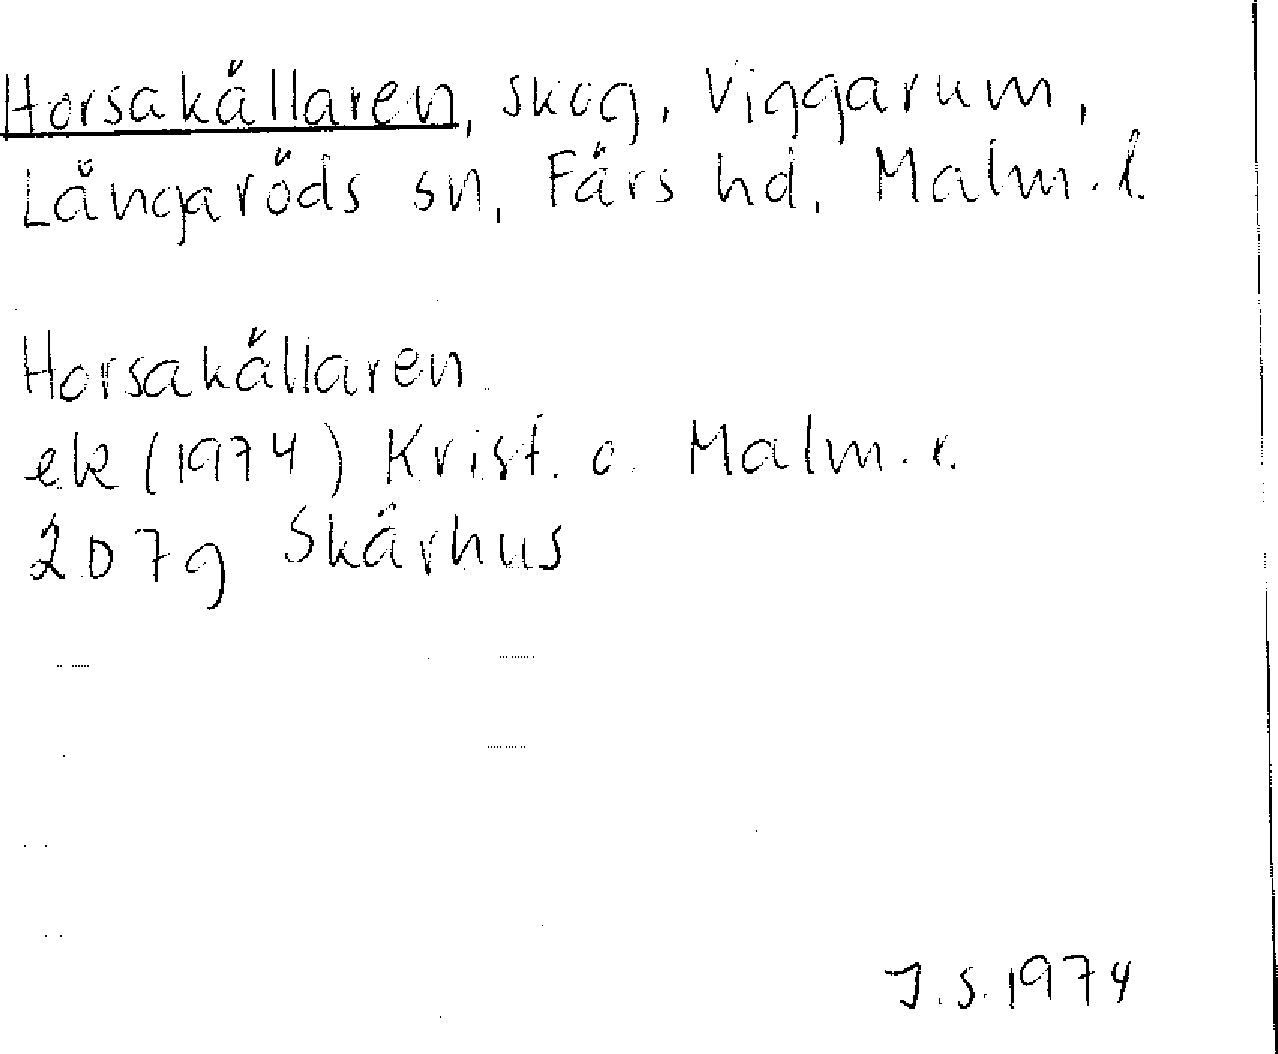 Horsakällaren, skog, Viggarum,
Långaröds sn, Färs hd, Malm. l.
Horsakällaren
ek (1974) Krist. o. Malm. r.
2D 7g Skärhus
J.S. 1974